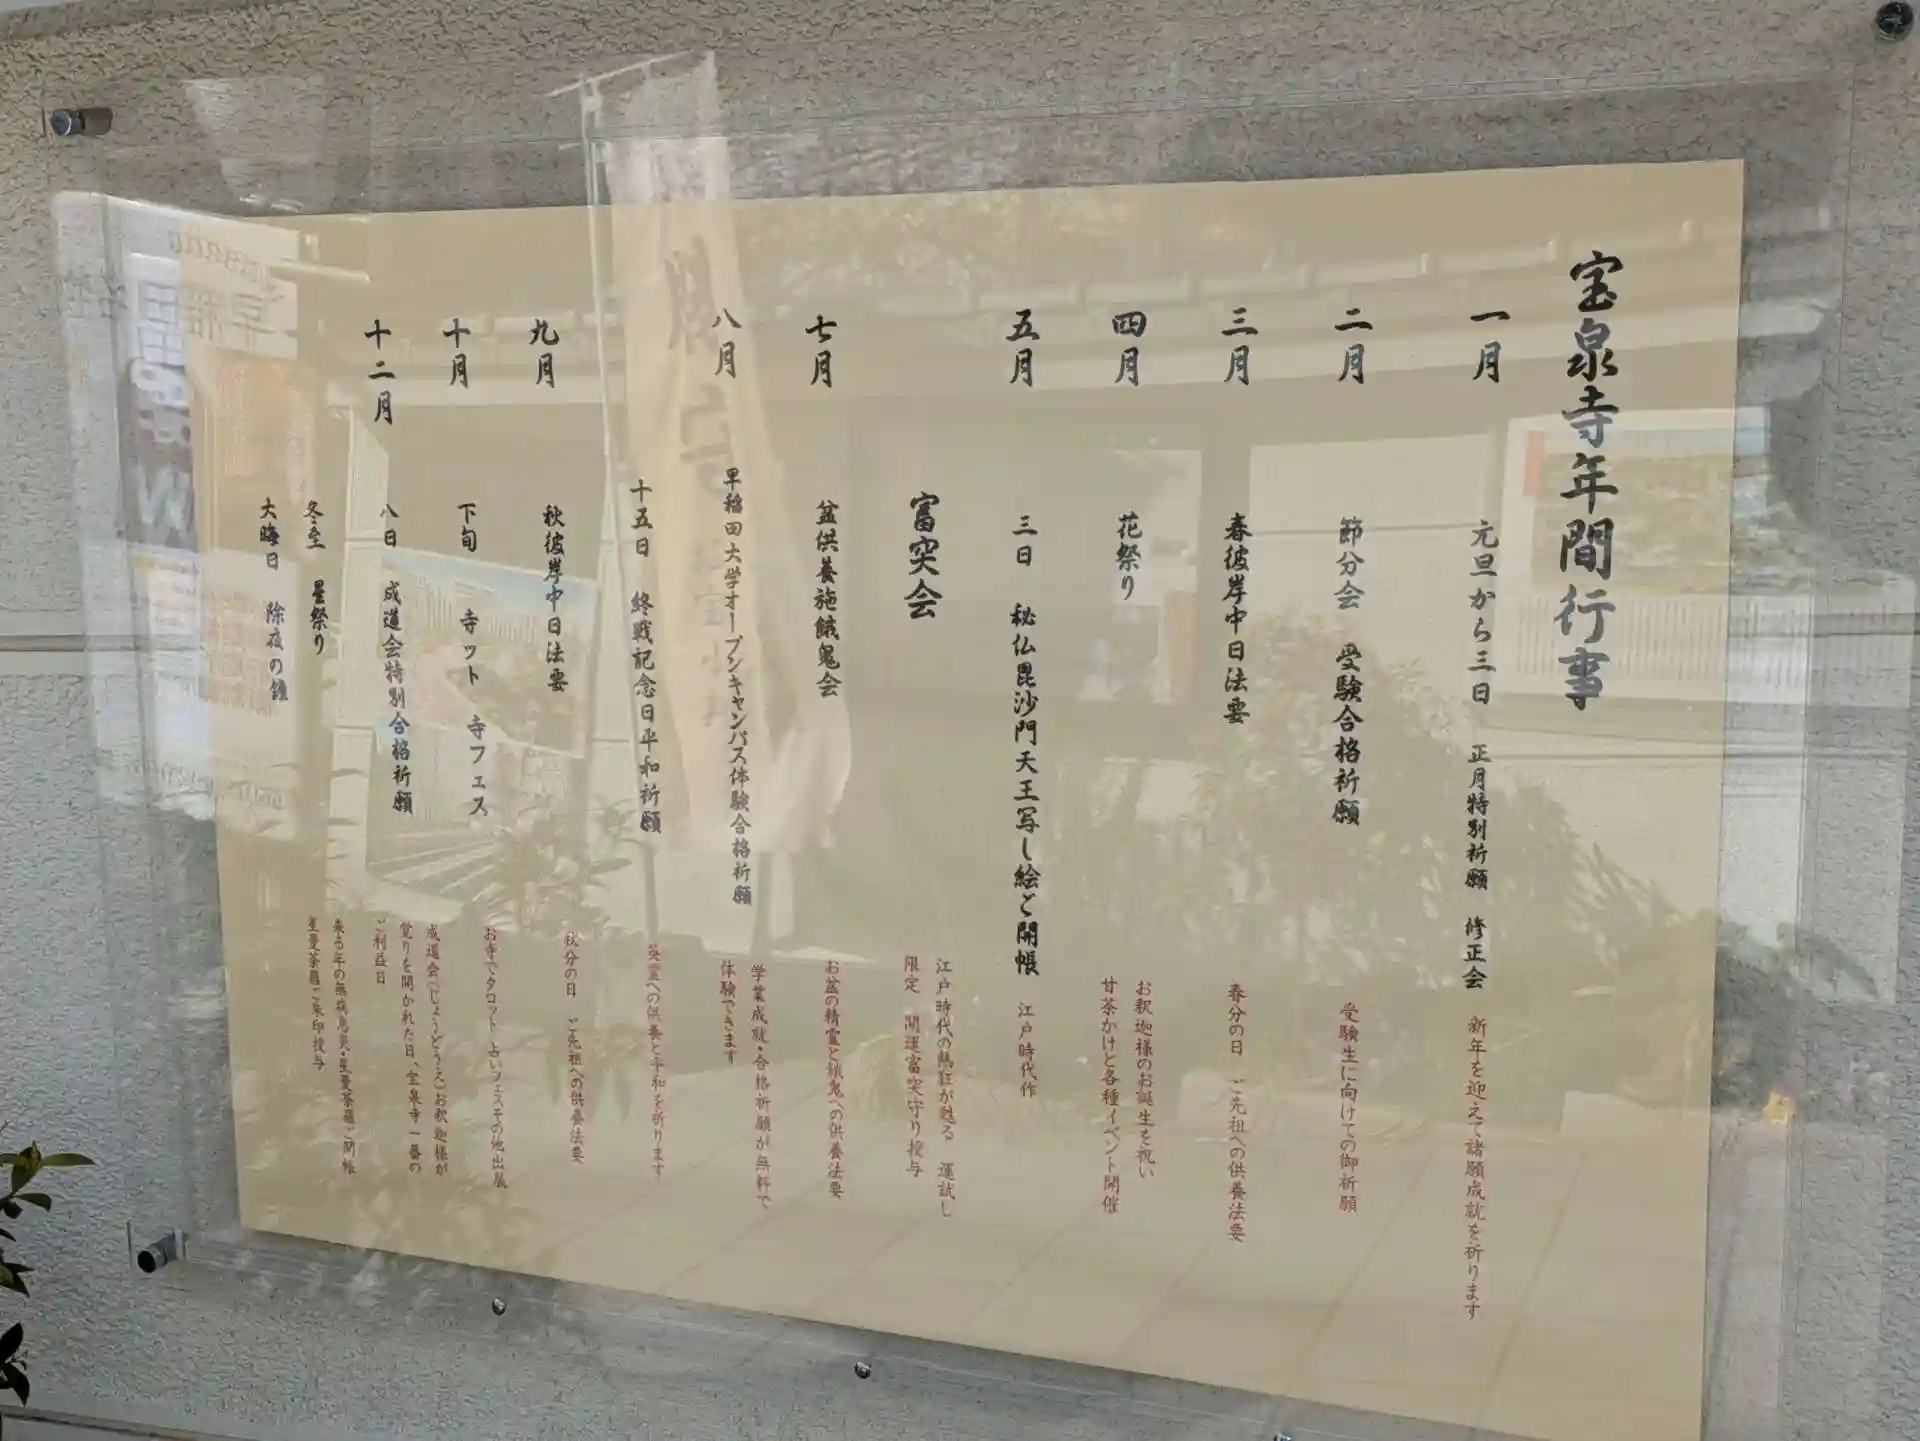 宝泉寺年間行事
一月 元旦から三日 正月特別祈願 修正会 新年を迎えて諸願成就を祈ります
二月 節分会 受験合格祈願 受験生に向けての御祈願
三月 春彼岸中日法要 春分の日 ご先祖への供養法要
四月 花祭り
お釈迦様のお誕生を祝い
甘茶かけと各種イベント開催
五月 三日 秘仏毘沙門天王写し絵ご開帳 江戸時代作
富突会
江戸時代の熱狂が甦る 運試し
限定 開運富突守り授与
七月 盆供養施餓鬼会 お盆の精霊と餓鬼への供養法要
八月 早稲田大学オープンキャンパス体験合格祈願
学業成就・合格祈願が無料で
体験できます
十五日 終戦記念日平和祈願 英霊への供養と平和を祈ります
九月 秋彼岸中日法要 秋分の日 ご先祖への供養法要
十月 下旬 寺ット 寺フェス お寺でタロット占いフェスその他出展
十二月 八日 成道会特別合格祈願
成道会(じょうどうえ)お釈迦様が
覚りを開かれた日、宝泉寺一番の
ご利益日
冬至 星祭り
来る年の無病息災・星曼荼羅ご開帳
星曼荼羅ご朱印授与
大晦日 除夜の鐘